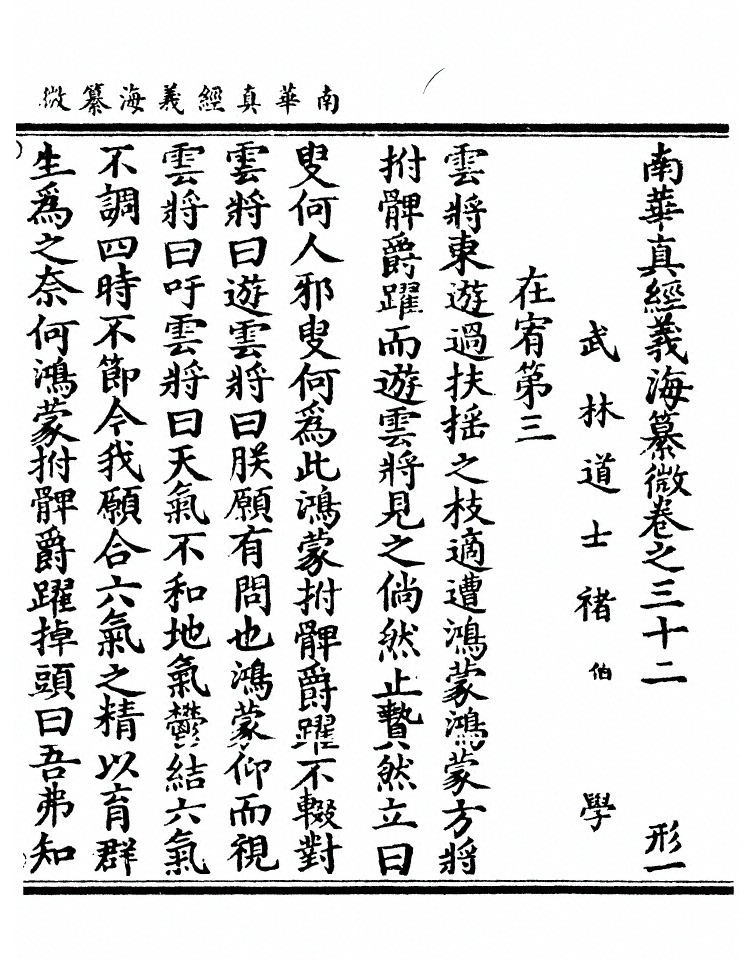 南華真經義海纂微
南華真經義海纂微卷之三十二 形一
武林道士褚伯 學
在宥第三
雲將東遊過扶搖之枝適遭鴻蒙鴻蒙方將
拊髀爵躍而遊雲將見之倘然止贄然立曰
叟何人邪叟何為此鴻蒙拊髀爵躍不輟對
雲將曰遊雲將曰朕願有問也鴻蒙仰而視
雲將曰吁雲將曰天氣不和地氣鬱結六氣
不調四時不節今我願合六氣之精以育群
生為之奈何鴻蒙拊髀爵躍掉頭曰吾弗知